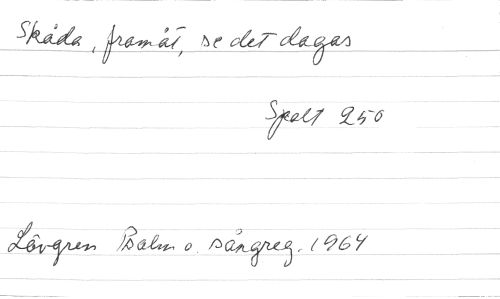 Skåda, framåt, se det dagas
Spalt 250
Lövgren Psalm o. sångreg. 1964